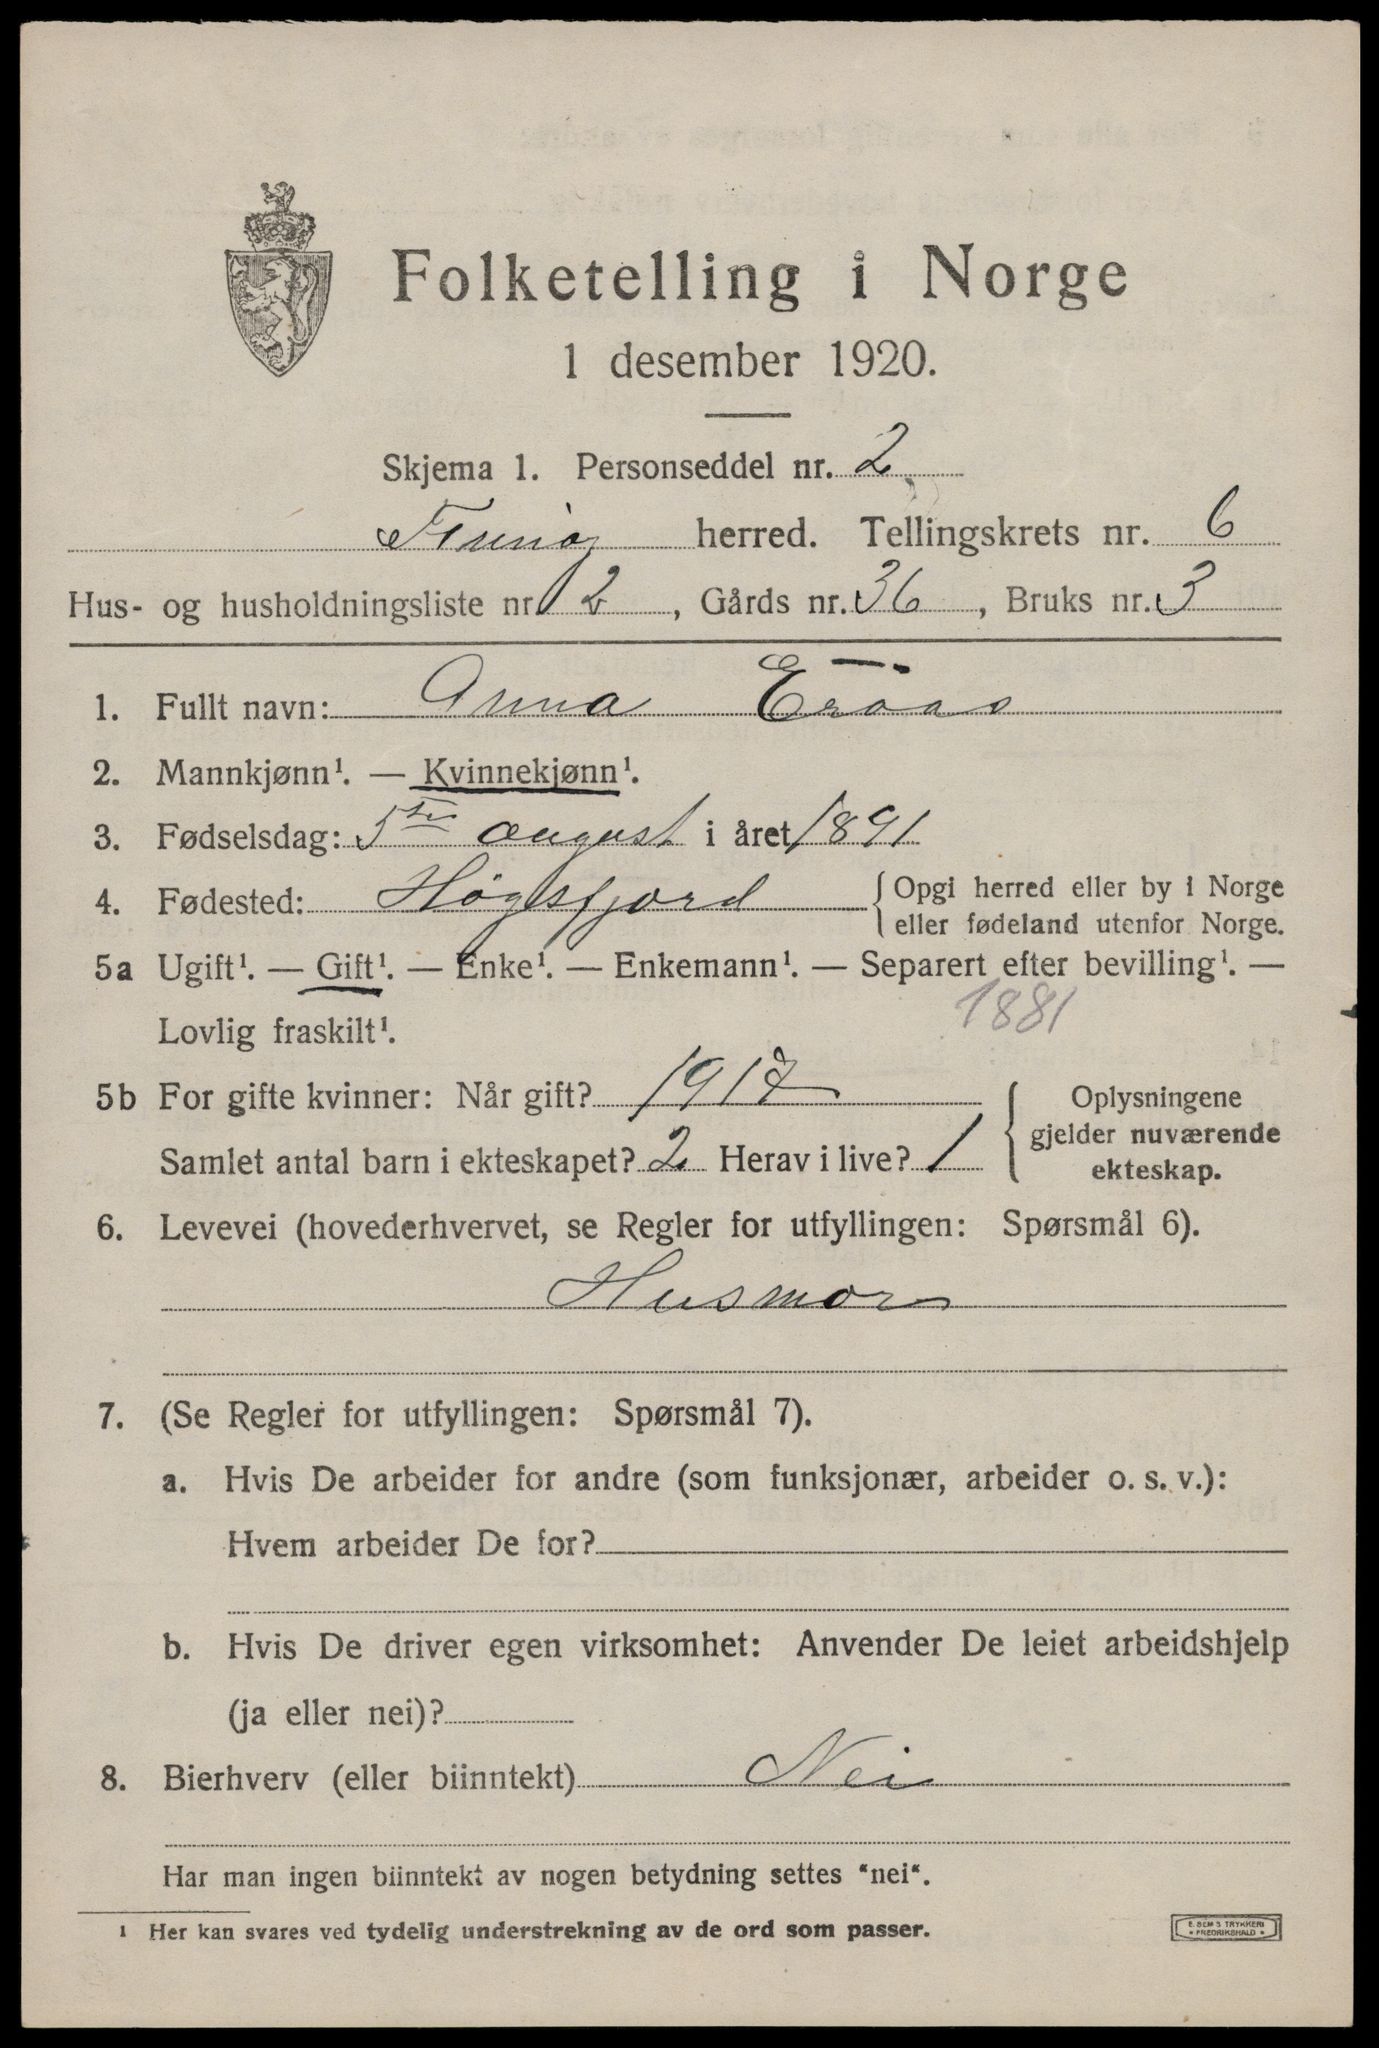 Folketelling i Norge
1 desember 1920.
Skjema 1. Personseddel nr. 2
Finnøy herred. Tellingskrets nr. 6
Hus- og husholdningsliste nr. 2, Gårds nr. 36, Bruks nr. 3
1. Fullt navn: Anna Eraas
2. Mannkjønn¹. — Kvinnekjønn¹.
3. Fødselsdag: 5te august i året 1891
4. Fødested: Høgsfjord {Opgi herred eller by i Norge
eller fødeland utenfor Norge.
5a Ugift¹. — Gift¹. — Enke¹. — Enkemann¹. — Separert efter bevilling¹. —
1881
Lovlig fraskilt¹.
5b For gifte kvinner: Når gift? 1917 { Oplysningene
gjelder nuværende
Samlet antal barn i ekteskapet? 2 Herav i live? 1
ekteskap.
6. Levevei (hovederhvervet, se Regler for utfyllingen: Spørsmål 6).
Husmor
7. (Se Regler for utfyllingen: Spørsmål 7).
a. Hvis De arbeider for andre (som funksjonær, arbeider o. s. v.):
Hvem arbeider De for?
b. Hvis De driver egen virksomhet: Anvender De leiet arbeidshjelp
(ja eller nei)?
8. Bierhverv (eller biinntekt) Nei
Har man ingen biinntekt av nogen betydning settes "nei".
1 Her kan svares ved tydelig understrekning av de ord som passer.
E. SEM'S TRYKKERI
* FREDRIKSHALD *